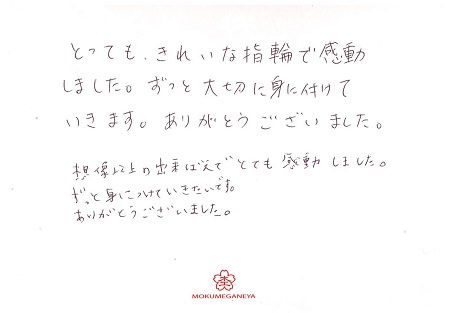 とっても、きれいな指輪で感動
しました。ずっと大切に身に付けて
いきます。ありがとうございました。
想像以上の出来ばえでとても感動しました。
ずっと身につけていきたいです。
ありがとうございました。
MOKUMEGANEYA